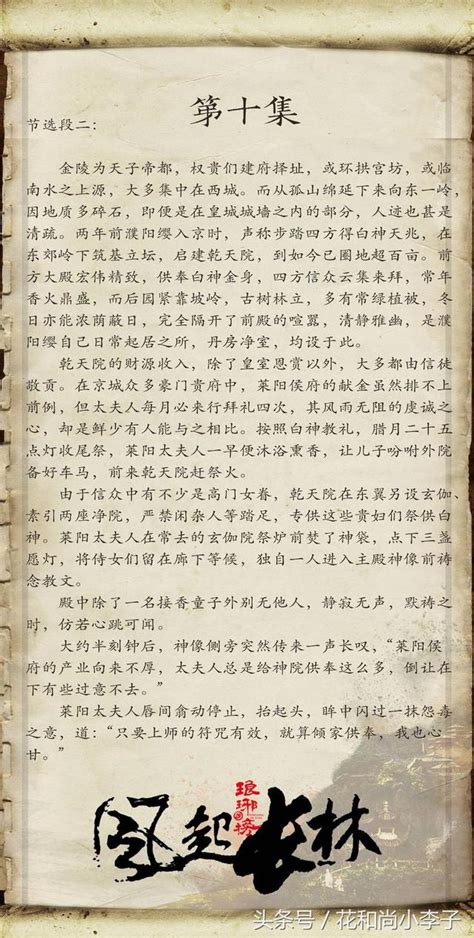 第十集
节选段二：
金陵为天子帝都，权贵们建府择址，或环拱宫坊，或临
南水之上源，大多集中在西城。而从孤山绵延下来向东一岭，
因地质多碎石，即便是在皇城城墙之内的部分，人迹也甚是
清疏。两年前濮阳缨入京时，声称步踏四方得白神天兆，在
东郊岭下筑基立坛，启建乾天院，到如今已圈地超百亩。前
方大殿宏伟精致，供奉白神金身，四方信众云集来拜，常年
香火鼎盛，而后园紧靠坡岭，古树林立，多有常绿植被，冬
日亦能浓荫蔽日，完全隔开了前殿的喧嚣，清静雅幽，是濮
阳缨自己日常起居之所，丹房净室，均设于此。
乾天院的财源收入，除了皇室恩赏以外，大多都由信徒
敬贡。在京城众多豪门贵府中，莱阳侯府的献金虽然排不上
前例，但太夫人每月必来行拜礼四次，其风雨无阻的虔诚之
心，却是鲜少有人能与之相比。按照白神教礼，腊月二十五
点灯收尾祭，莱阳太夫人一早便沐浴熏香，让儿子吩咐外院
备好车马，前来乾天院赶祭火。
由于信众中有不少是高门女眷，乾天院在东翼另设玄伽、
素引两座净院，严禁闲杂人等踏足，专供这些贵妇们祭供白
神。莱阳太夫人在常去的玄伽院祭炉前焚了神袋，点下三盏
愿灯，将侍女们留在廊下等候，独自一人进入主殿神像前祷
念教文。
殿中除了一名接香童子外别无他人，静寂无声，默祷之
时，仿若心跳可闻。
大约半刻钟后，神像侧旁突然传来一声长叹，“莱阳侯
府的产业向来不厚，太夫人总是给神院供奉这么多，倒让在
下有些过意不去。”
莱阳太夫人唇间翕动停止，抬起头，眸中闪过一抹怨毒
之意，道：“只要上师的符咒有效，就算倾家供奉，我也心
甘。”
琅琊榜
风起长林
头条号/花和尚小李子